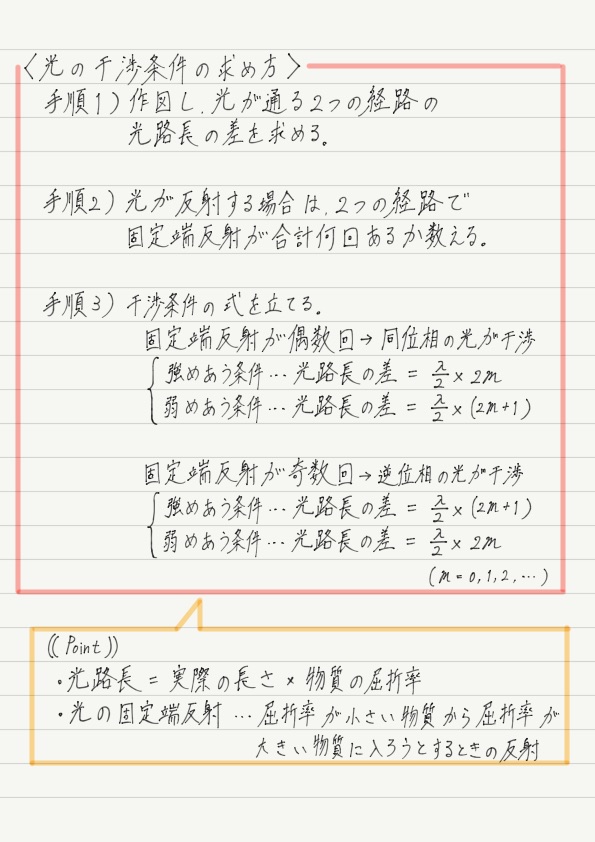 〈光の干渉条件の求め方〉
手順1) 作図し、光が通る2つの経路の
光路長の差を求める。
手順2) 光が反射する場合は、2つの経路で
固定端反射が合計何回あるか数える。
手順3) 干渉条件の式を立てる。
固定端反射が偶数回→同位相の光が干渉
強めあう条件…光路長の差 = λ/2 × 2m
弱めあう条件…光路長の差 = λ/2 × (2m+1)
固定端反射が奇数回→逆位相の光が干渉
強めあう条件…光路長の差 = λ/2 × (2m+1)
弱めあう条件…光路長の差 = λ/2 × 2m
(m = 0, 1, 2, …)
((Point))
・光路長 = 実際の長さ × 物質の屈折率
・光の固定端反射 … 屈折率が小さい物質から屈折率が
大きい物質に入ろうとするときの反射